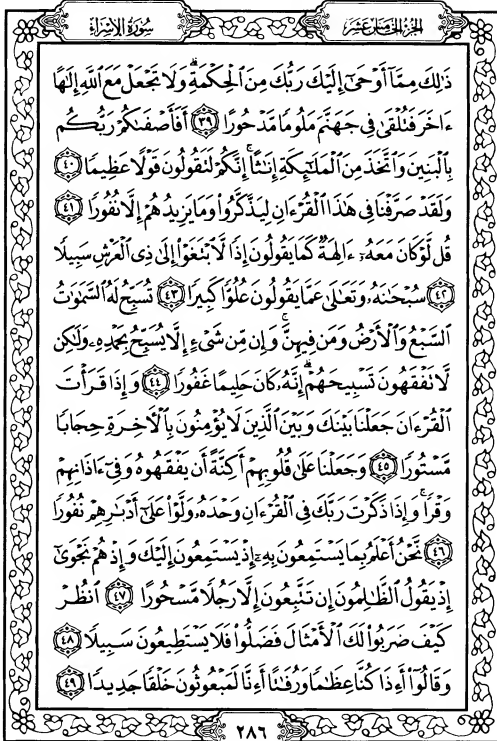 سُورَةُ الإِسْرَاءِ
الجُزْءُ الخَامِسَ عَشَرَ
ذَٰلِكَ مِمَّآ أَوْحَىٰٓ إِلَيْكَ رَبُّكَ مِنَ ٱلْحِكْمَةِ ۗ وَلَا تَجْعَلْ مَعَ ٱللَّهِ إِلَٰهًا
ءَاخَرَ فَتُلْقَىٰ فِى جَهَنَّمَ مَلُومًا مَّدْحُورًا ٣٩ أَفَأَصْفَىٰكُمْ رَبُّكُم
بِٱلْبَنِينَ وَٱتَّخَذَ مِنَ ٱلْمَلَٰٓئِكَةِ إِنَٰثًا ۚ إِنَّكُمْ لَتَقُولُونَ قَوْلًا عَظِيمًا ٤٠
وَلَقَدْ صَرَّفْنَا فِى هَٰذَا ٱلْقُرْءَانِ لِيَذَّكَّرُوا۟ وَمَا يَزِيدُهُمْ إِلَّا نُفُورًا ٤١
قُل لَّوْ كَانَ مَعَهُۥٓ ءَالِهَةٌ كَمَا يَقُولُونَ إِذًا لَّٱبْتَغَوْا۟ إِلَىٰ ذِى ٱلْعَرْشِ سَبِيلًا
٤٢ سُبْحَٰنَهُۥ وَتَعَٰلَىٰ عَمَّا يَقُولُونَ عُلُوًّا كَبِيرًا ٤٣ تُسَبِّحُ لَهُ ٱلسَّمَٰوَٰتُ
ٱلسَّبْعُ وَٱلْأَرْضُ وَمَن فِيهِنَّ ۚ وَإِن مِّن شَىْءٍ إِلَّا يُسَبِّحُ بِحَمْدِهِۦ وَلَٰكِن
لَّا تَفْقَهُونَ تَسْبِيحَهُمْ ۗ إِنَّهُۥ كَانَ حَلِيمًا غَفُورًا ٤٤ وَإِذَا قَرَأْتَ
ٱلْقُرْءَانَ جَعَلْنَا بَيْنَكَ وَبَيْنَ ٱلَّذِينَ لَا يُؤْمِنُونَ بِٱلْءَاخِرَةِ حِجَابًا
مَّسْتُورًا ٤٥ وَجَعَلْنَا عَلَىٰ قُلُوبِهِمْ أَكِنَّةً أَن يَفْقَهُوهُ وَفِىٓ ءَاذَانِهِمْ
وَقْرًا ۚ وَإِذَا ذَكَرْتَ رَبَّكَ فِى ٱلْقُرْءَانِ وَحْدَهُۥ وَلَّوْا۟ عَلَىٰٓ أَدْبَٰرِهِمْ نُفُورًا
٤٦ نَّحْنُ أَعْلَمُ بِمَا يَسْتَمِعُونَ بِهِۦٓ إِذْ يَسْتَمِعُونَ إِلَيْكَ وَإِذْ هُمْ نَجْوَىٰٓ
إِذْ يَقُولُ ٱلظَّٰلِمُونَ إِن تَتَّبِعُونَ إِلَّا رَجُلًا مَّسْحُورًا ٤٧ ٱنظُرْ
كَيْفَ ضَرَبُوا۟ لَكَ ٱلْأَمْثَالَ فَضَلُّوا۟ فَلَا يَسْتَطِيعُونَ سَبِيلًا ٤٨
وَقَالُوٓا۟ أَءِذَا كُنَّا عِظَٰمًا وَرُفَٰتًا أَءِنَّا لَمَبْعُوثُونَ خَلْقًا جَدِيدًا ٤٩
٢٨٦